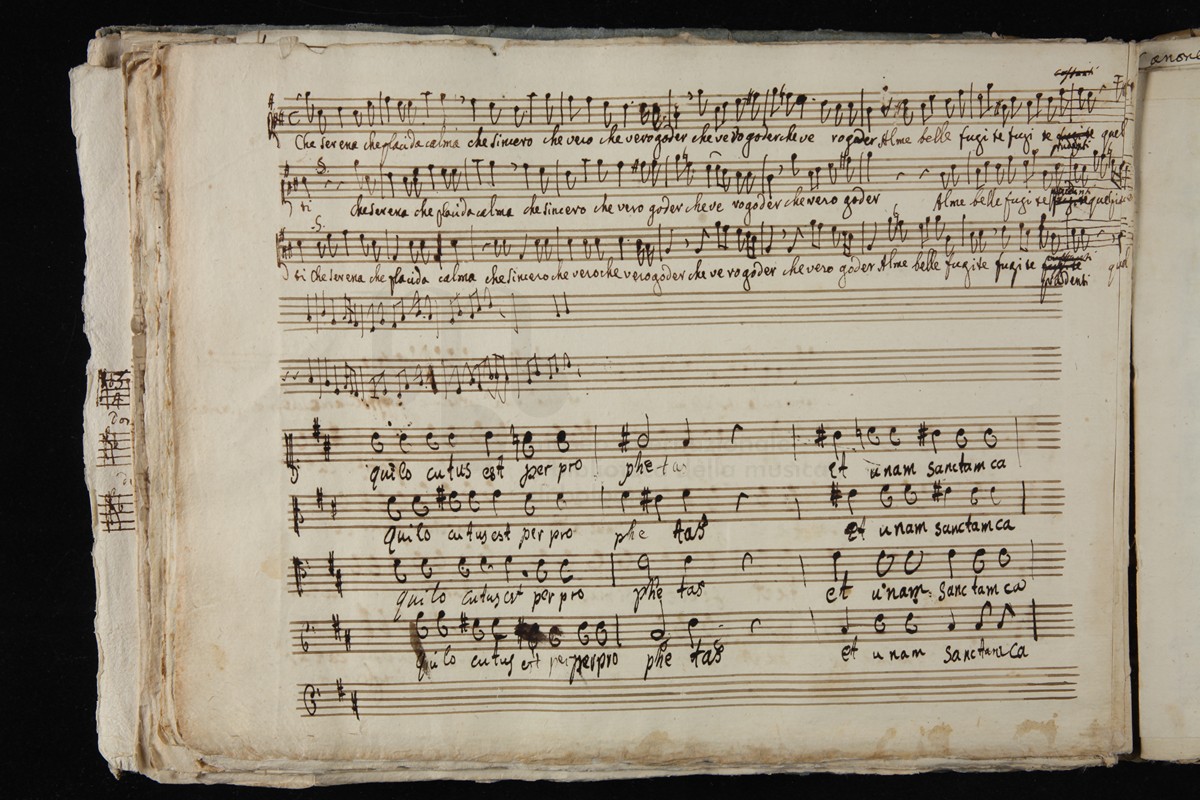 Canone
Che serena che placida calma che sincero che vero che vero goder che vero goder che ve ro goder Alme belle fugi te fugi te prudenti quel
ti che serena che placida calma che sincero che vero goder che ve ro goder che vero goder Alme belle fugi te
ti Che serena che placida calma che sincero che vero che vero goder che ve ro goder che vero goder Alme belle fugi te fugi te prudenti quel
qui lo cutus est per pro phe ta et unam sanctam ca
qui lo cutus est per pro phe tas et unam sanctam ca
qui lo cutus est per pro phe tas et unam sanctam ca
qui lo cutus est per per pro phe tas et unam sanctam ca
della musica